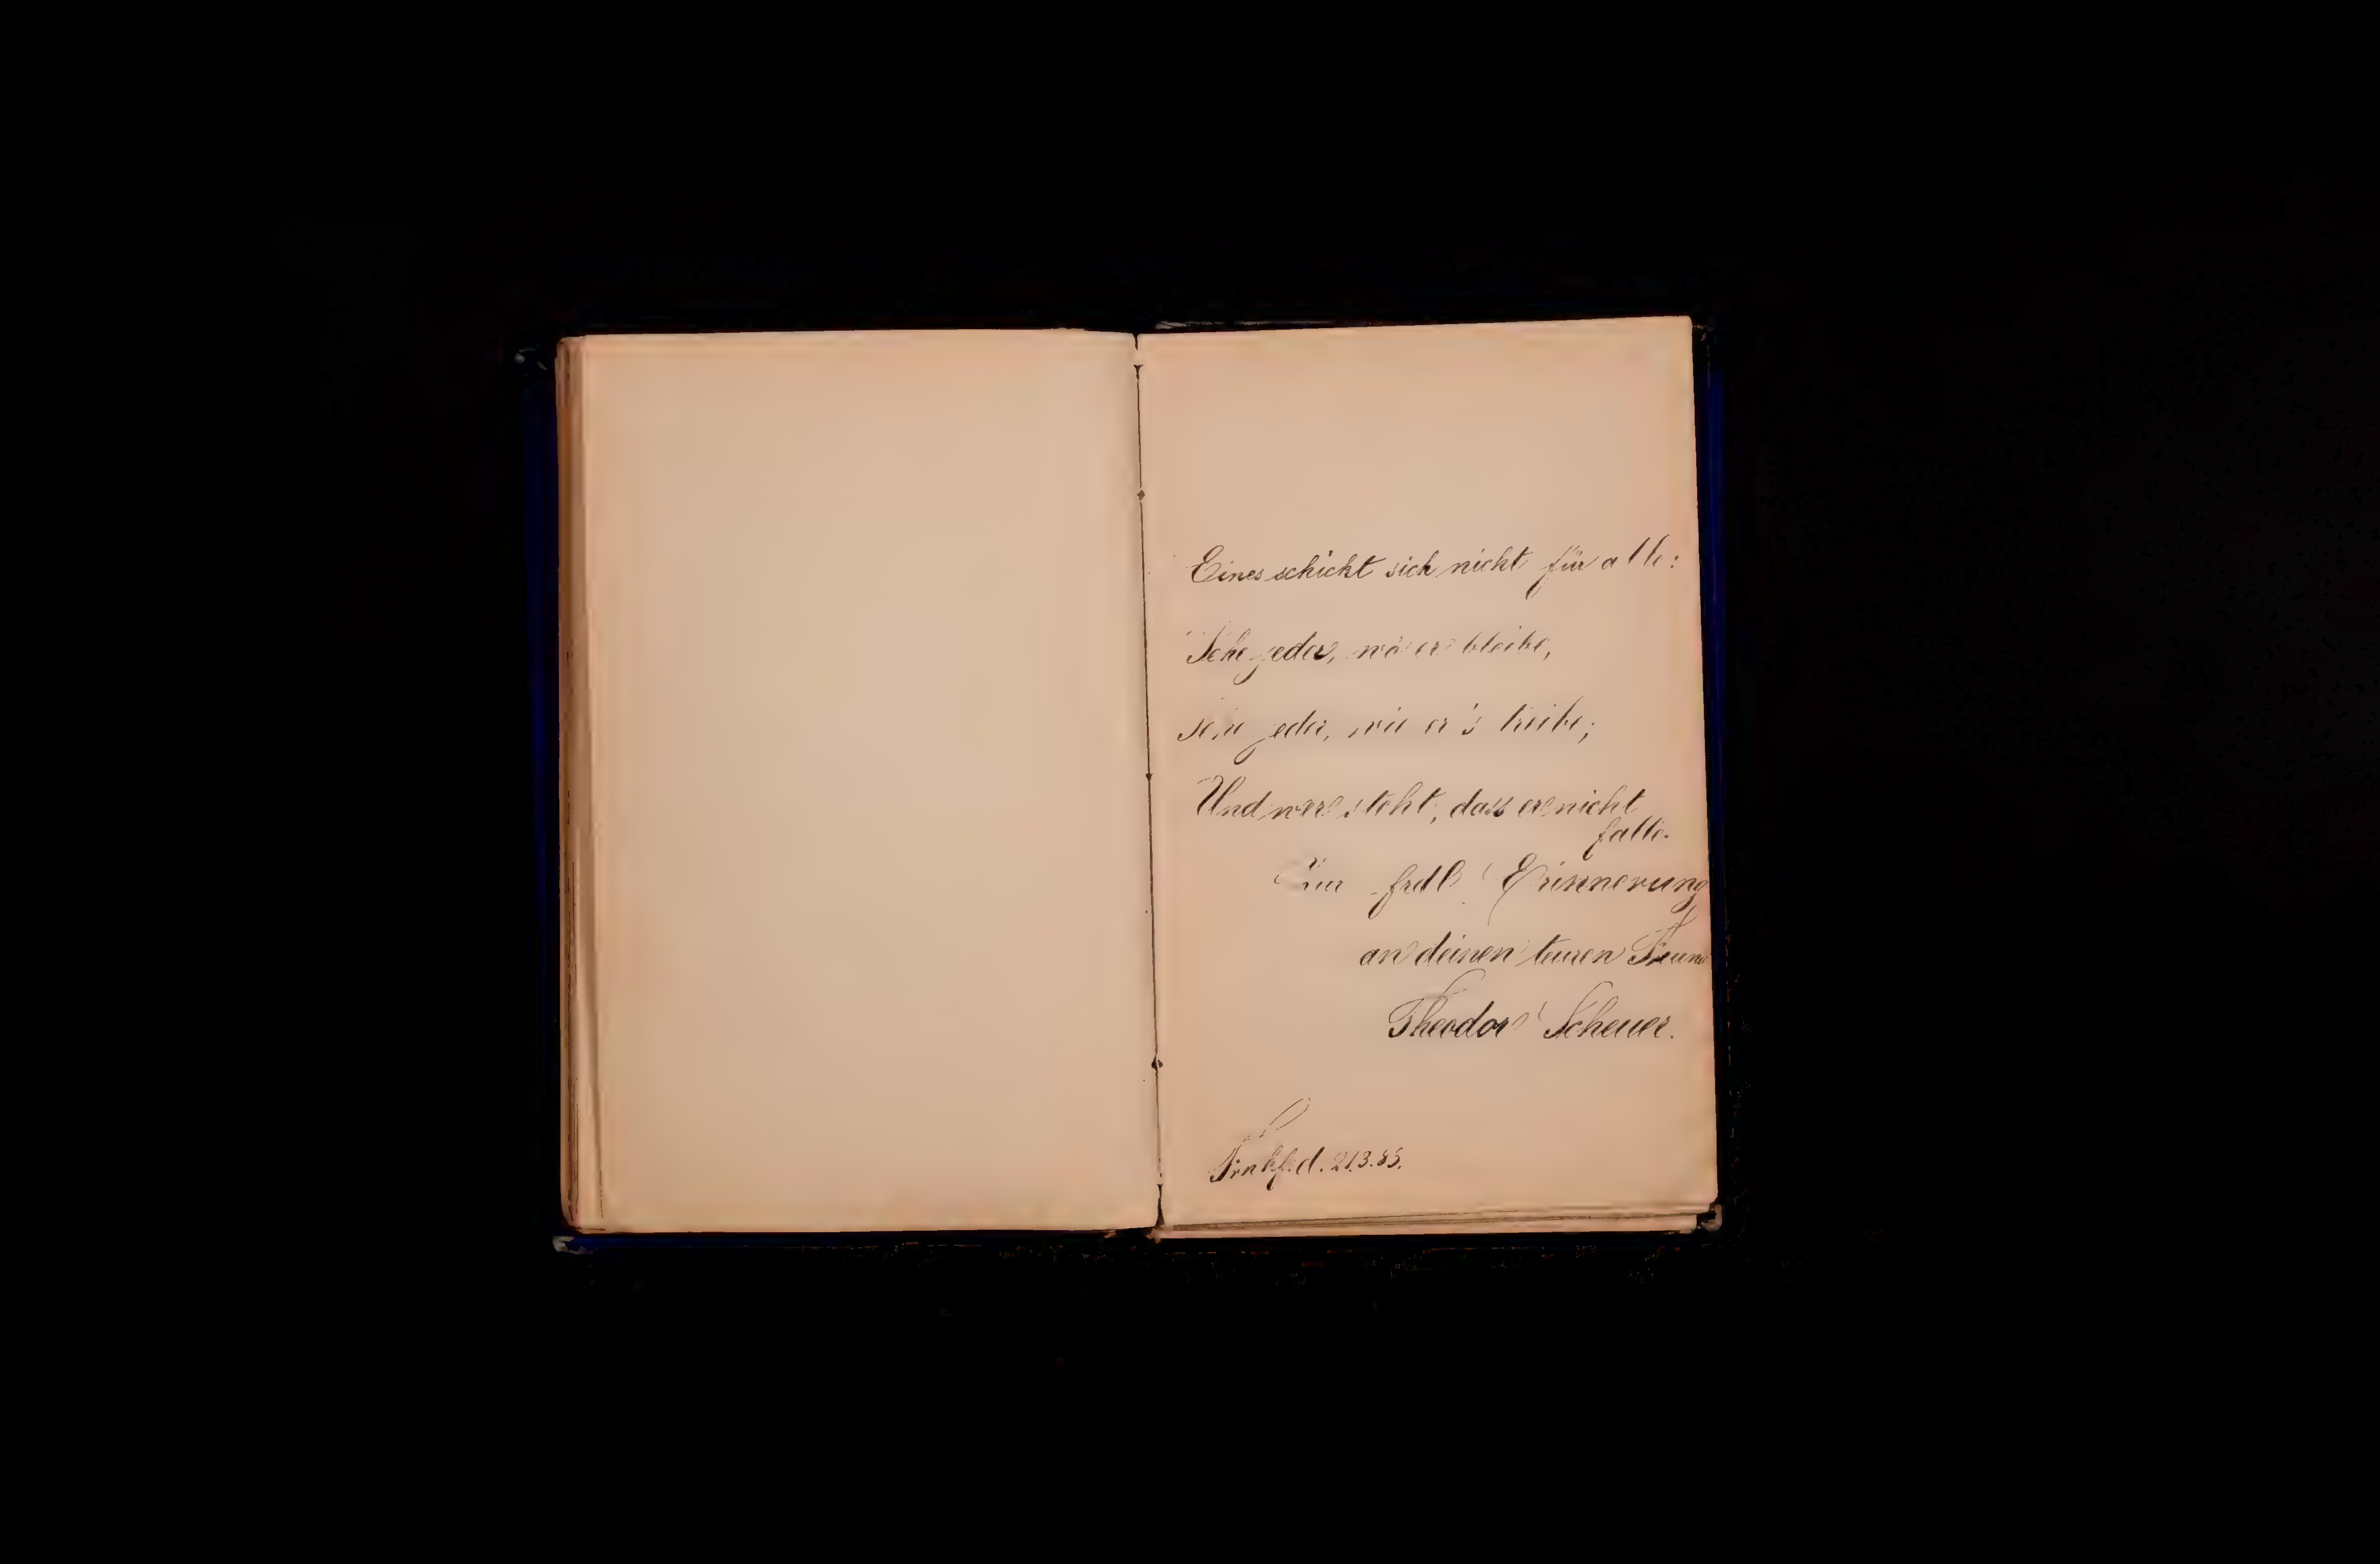 Eines schickt sich nicht für alle:
Sehe jeder, wo er bleibe,
sehe jeder, wie er's treibe;
Und wer steht, dass er nicht
falle.
Zur frdl Erinnerung
an deinen teuren Freund
Theodor Scheuer.
Frnkf. d. 21.3.85.